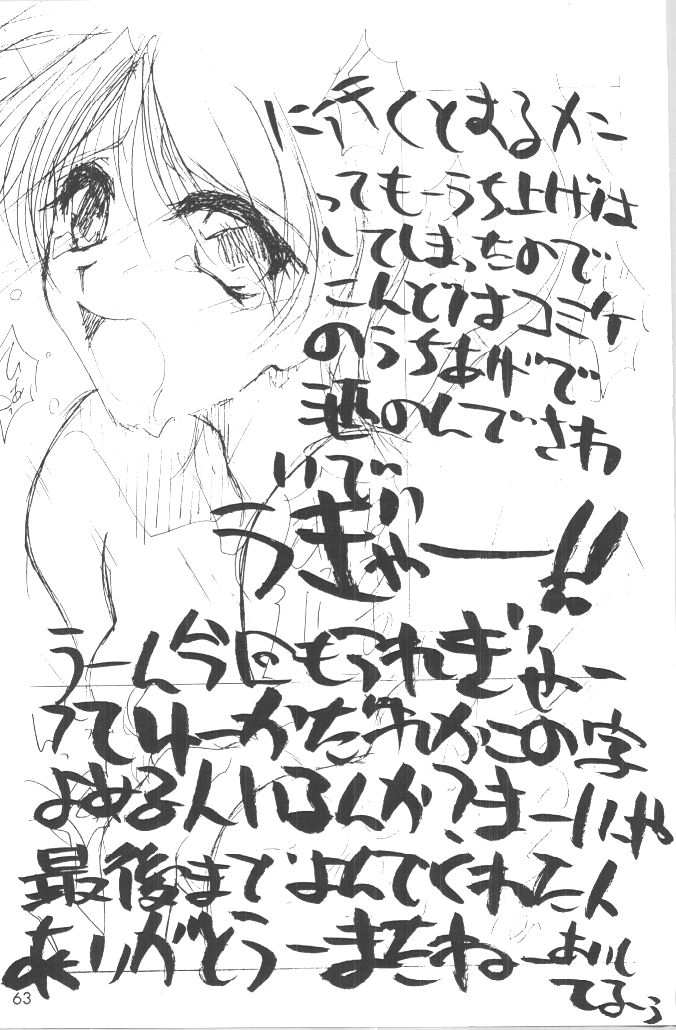 に行くとするメニ
ってもーうち上げは
してしまったので
こんどはコミケ
のうちあげで
酒のんでさわ
いでい
うぎゃー!!
うーん今にもつれぎゃー
ってりゅーかだれかこの字
よめる人いるんか?まーいいや
最後までよんでくれた人
ありがとうーまたねー
あいし
てるーう
63